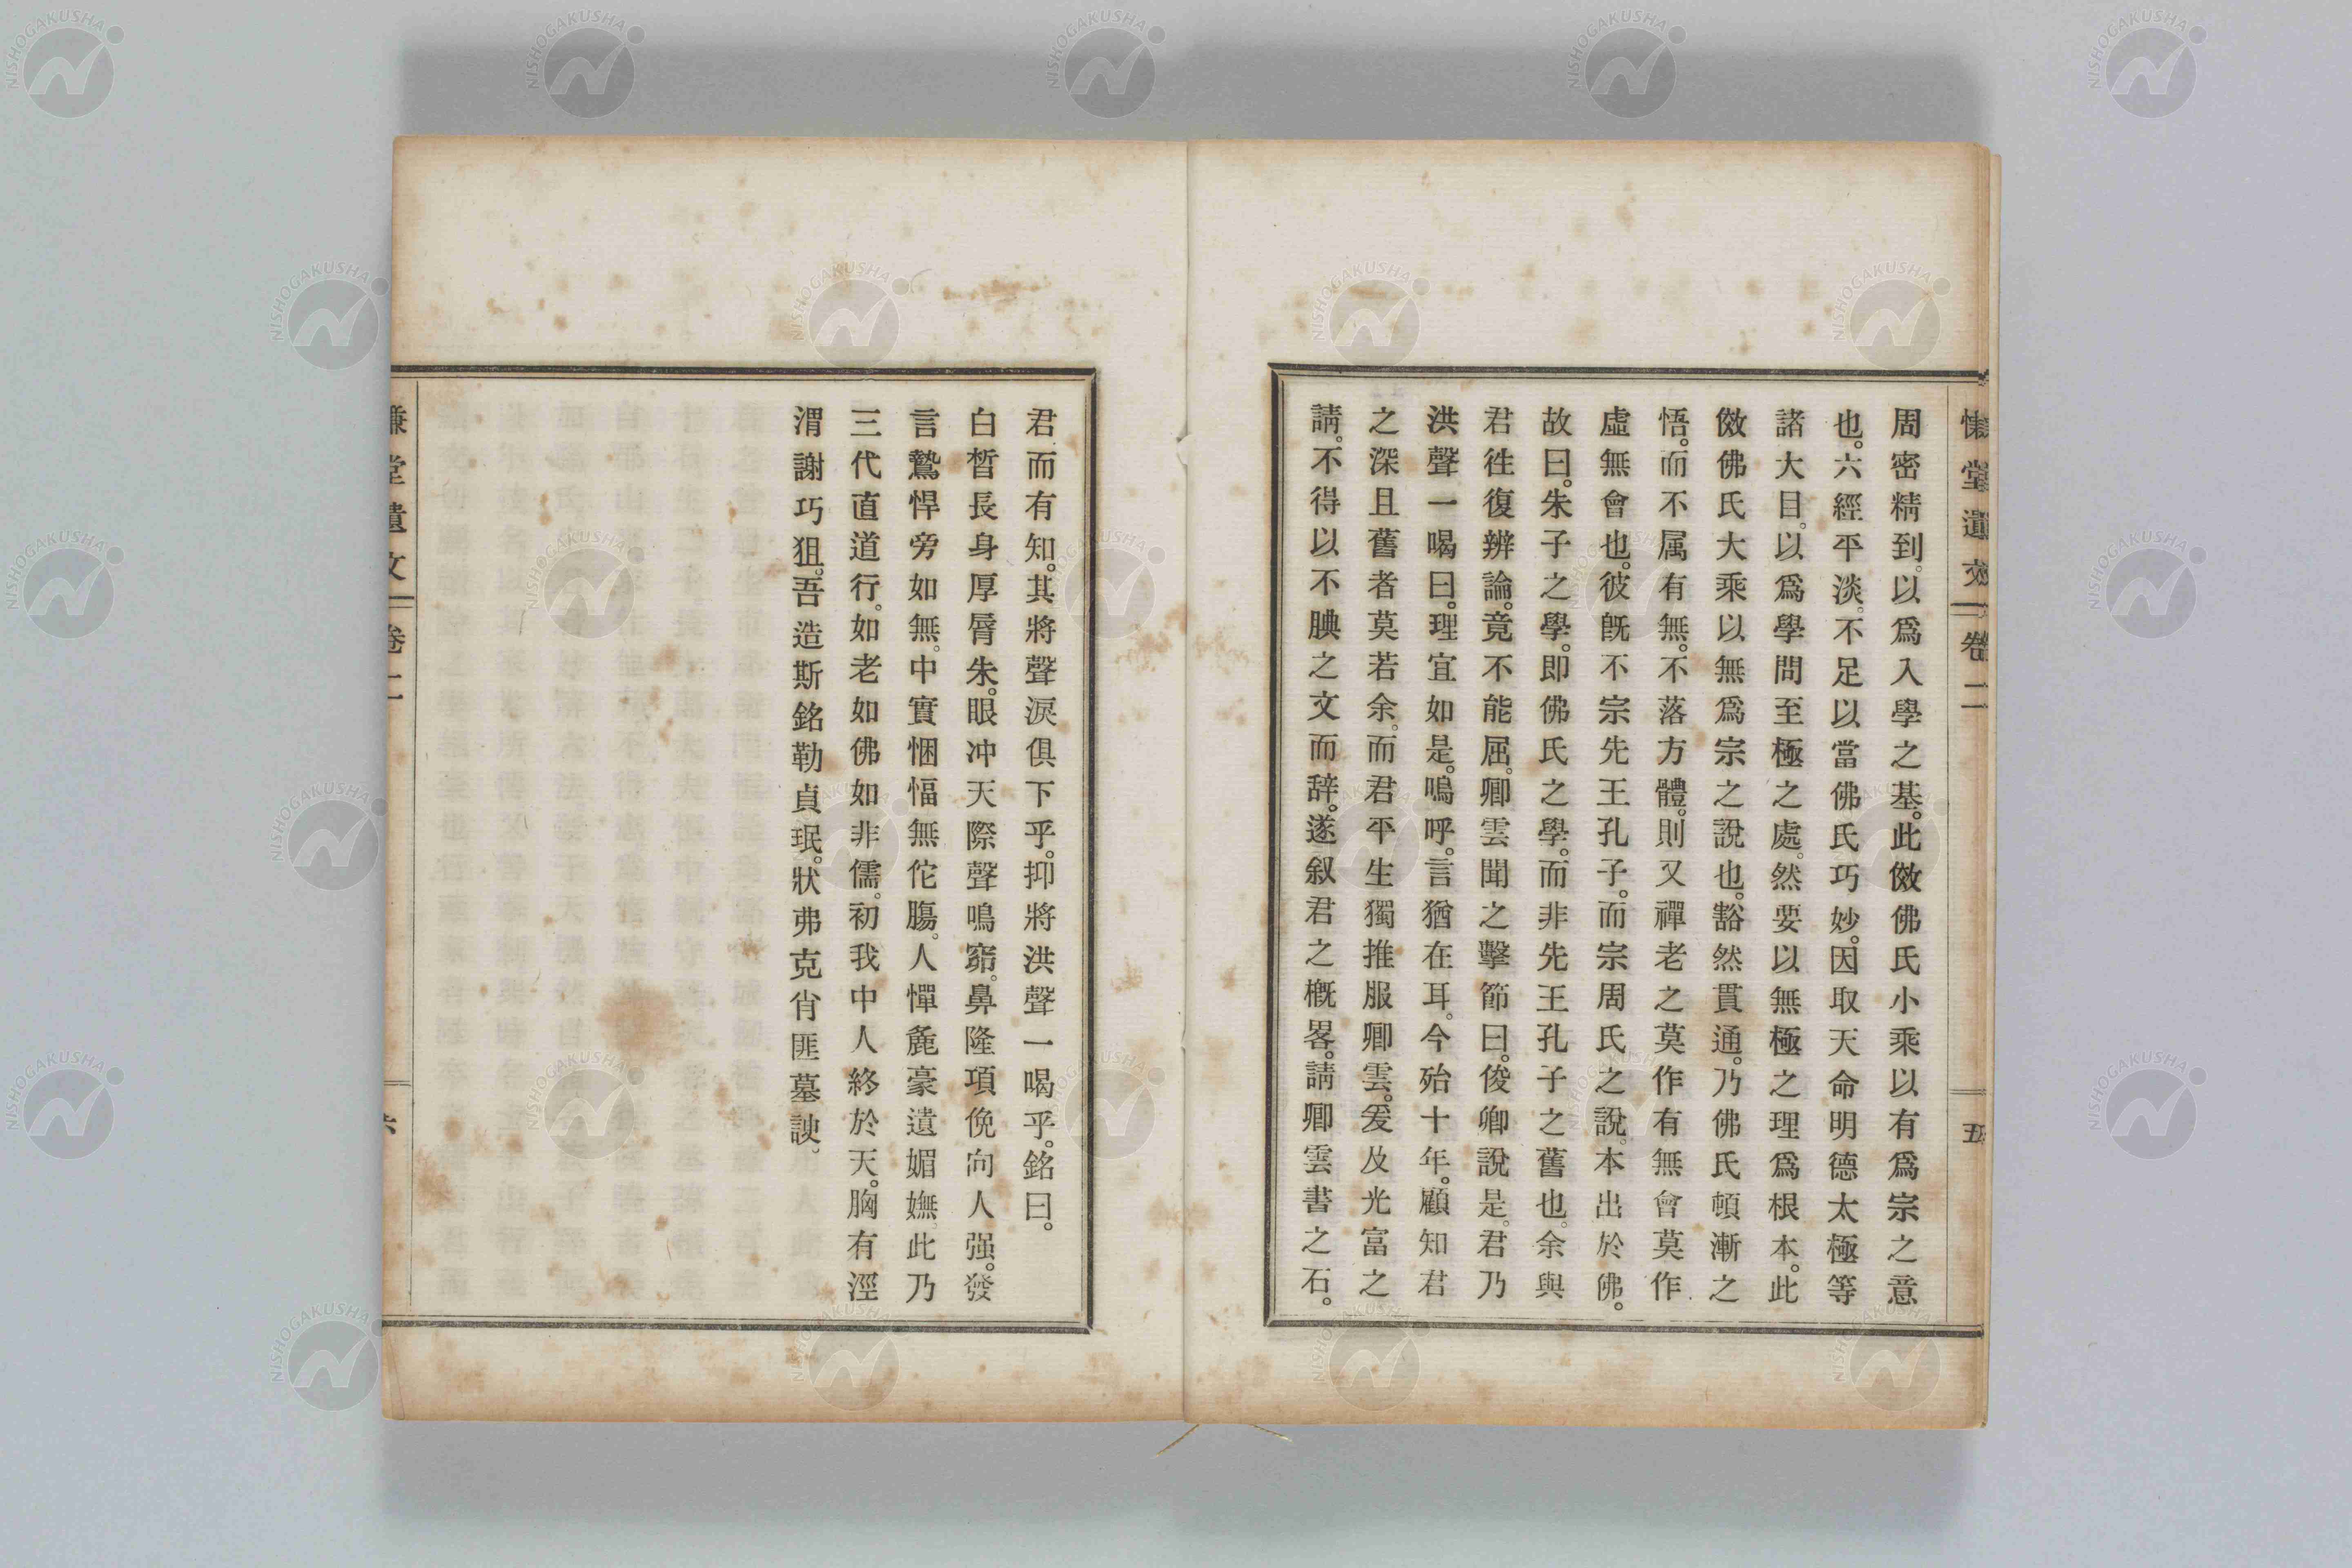 慊堂遺文 卷二 五
周密精到。以爲入學之基。此傚佛氏小乘以有爲宗之意
也。六經平淡。不足以當佛氏巧妙。因取天命明德太極等
諸大目。以爲學問至極之處。然要以無極之理爲根本。此
傚佛氏大乘以無爲宗之說也。豁然貫通。乃佛氏頓漸之
悟。而不属有無。不落方體。則又禪老之莫作有無會莫作
虛無會也。彼旣不宗先王孔子。而宗周氏之說。本出於佛。
故曰。朱子之學。即佛氏之學。而非先王孔子之舊也。余與
君徃復辨論。竟不能屈。卿雲聞之擊節曰。俊卿說是。君乃
洪聲一喝曰。理宜如是。嗚呼。言猶在耳。今殆十年。顧知君
之深且舊者莫若余。而君平生獨推服卿雲。爰及光富之
請。不得以不腆之文而辞。遂叙君之槪畧。請卿雲書之石。
君而有知。其將聲淚俱下乎。抑將洪聲一喝乎。銘曰。
白皙長身厚脣朱。眼冲天際聲鳴窌。鼻隆項俛向人强。發
言鷙悍旁如無。中實悃愊無佗膓。人憚麁豪遺媚嫵。此乃
三代直道行。如老如佛如非儒。初我中人終於天。胸有涇
渭謝巧狙。吾造斯銘勒貞珉。狀弗克肖匪墓諛。
慊堂遺文 卷二 六
NISHOGAKUSHA